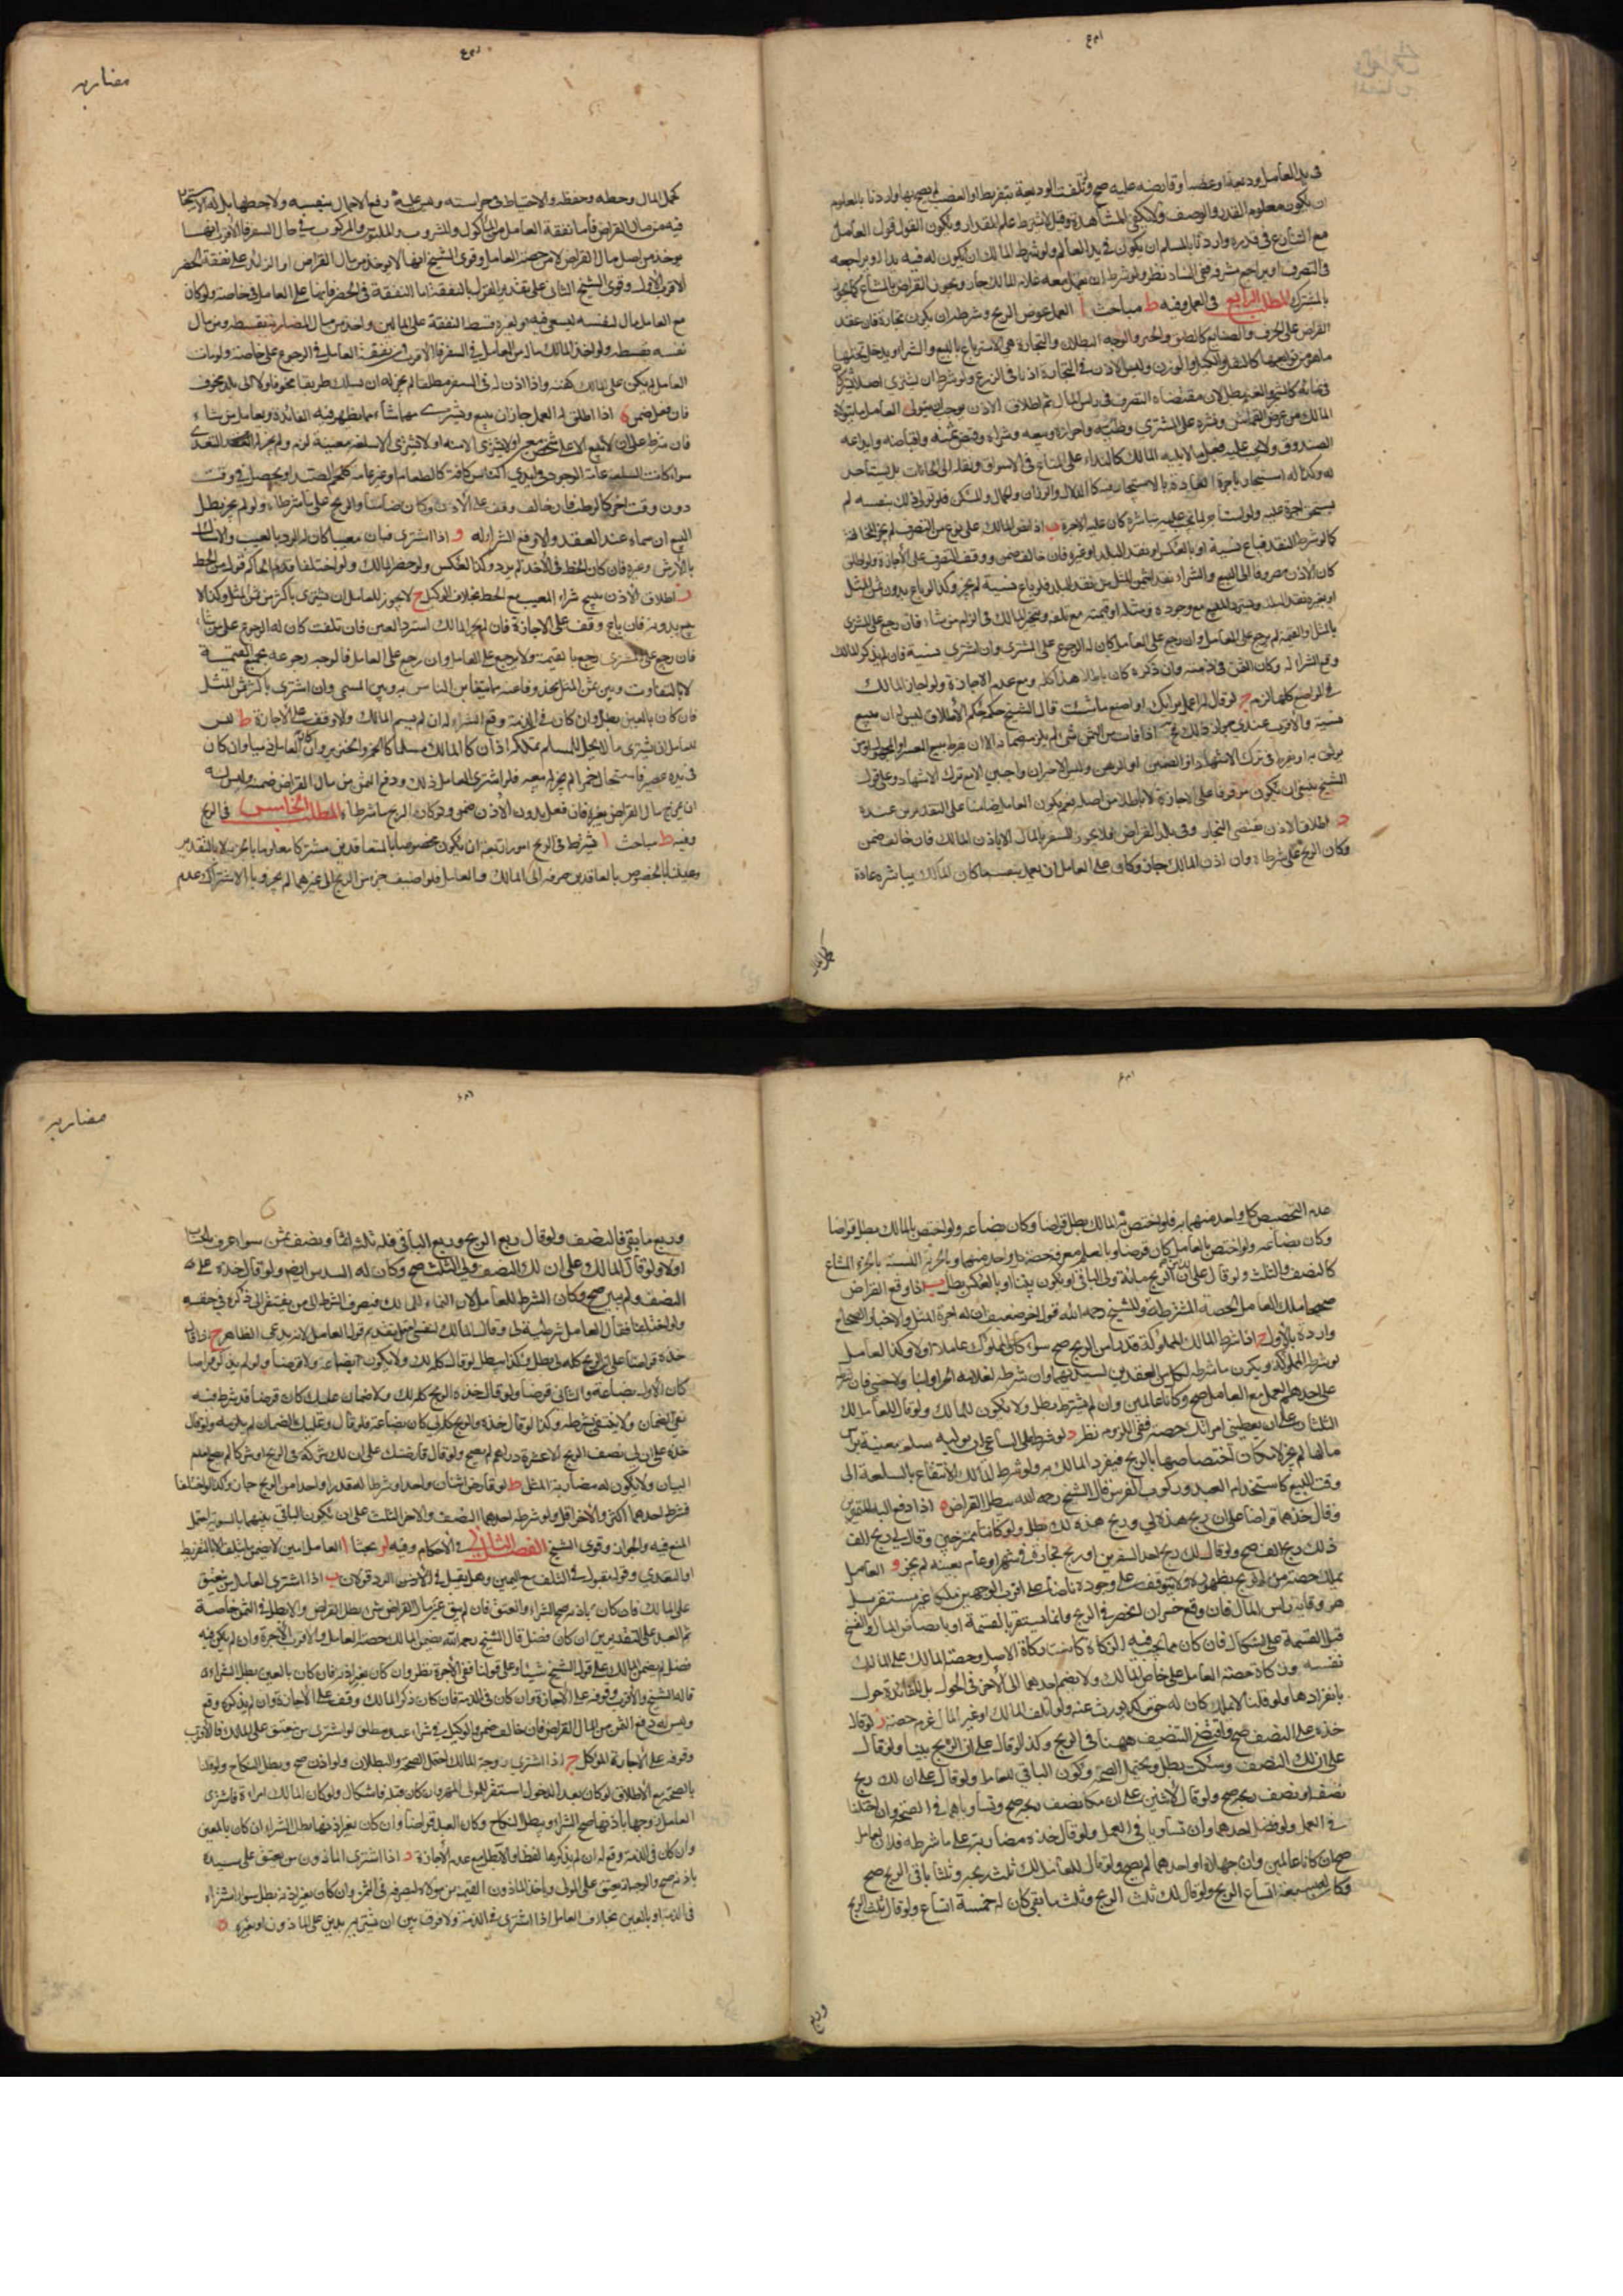 في يد العامل وديعة او غصبا وقارضه عليه صح ولو تلفت الوديعة بتفريط او الغصب لم يصح بها واردنا بالمعلوم
ان يكون معلوم القدر والوصف ولا يكفي المشاهدة وقيل لا يشترط علم المقدار ويكون القول قول العامل
مع التنازع في قدره واردنا بالمسلم ان يكون في يد العامل ولو شرط المالك ان يكون له فيه يد او يراجعه
في التصرف او يراجع مشرفه ففي الفساد نظر ولو شرط ان يعمل معه غلام المالك جاز ويجوز القراض بالمشاع كما يجوز
بالمشترك المطلب الرابع في العمل وفيه ط مباحث ا العمل عوض الربح وشرطه ان يكون تجارة فان عقد
القراض على الحرف والصنايع كالطحن والخبز والوجه البطلان والتجارة هي الاسترباح بالبيع والشراء ويدخل تحتها
ما هو من توابعها كالنقل والكيل والوزن وليس الاذن في التجارة اذنا في الزرع ولو شرط ان يشتري اصلا يشتركان
في نمائه كالشجر والغنم بطل لان مقتضاه التصرف في راس المال ثم اطلاق الاذن يوجب ان يتولى العامل ما يتولاه
المالك من عرض القماش ونشره على المشتري وطيه واحرازه وبيعه وشراه وقبض ثمنه واقباضه وايداعه
الصندوق ولا يجب عليه فعل ما لا يليه المالك كالنداء على المتاع في الاسواق ونقله الى الخانات بل يستاجر
له وكذا له استيجار ما جرت العادة بالاستيجار فيه كالدلال والوزان والحمال والمسكن فلو تولى ذلك بنفسه لم
يستحق اجرة عليه ولو استاجر لما يجب عليه مباشرته كان عليه الاجرة ب اذا نص المالك على نوع من التصرف لم يجز المخالفة
كما لو شرط النقد فباع نسية او بالعكس او نقد البلد او غيره فان خالف ضمن ووقف التصرف على الاجازة ولو اطلق
كان الاذن مصروفا الى البيع والشراء نقدا بثمن المثل من نقد البلد فلو باع نسية لم يجز وكذا لو باع بدون ثمن المثل
او بغير نقد البلد ويسترد المبيع مع وجوده ومثله او قيمته مع تلفه ويتخير المالك في الزام من شاء فان رجع على المشتري
بالمثل او القيمة لم يرجع على العامل وان رجع على العامل كان له الرجوع على المشتري وان اشترى نسية فان لم يذكر المالك
وقع الشراء له وكان الثمن في ذمته وان ذكره كان باطلا هذا كله مع عدم الاجازة ولو اجاز المالك
في المواضع كلها لزم ج لو قال له اعمل برايك او اصنع ما شئت قال الشيخ حكمه حكم الاطلاق ليس له ان يبيع
نسية والاقرب عندي جواز ذلك فح اذا فات من الثمن شي لم يلزمه ضمانه الا ان يفرط ببيع المعسر او المجهول او من
لا يوثق به او يفرط في ترك الاشهاد او الضمين او الرهن وليس الاخيران واجبين الا مع ترك الاشهاد وعلى قول
الشيخ ينبغي ان يكون موقوفا على الاجازة لا باطلا من اصله نعم يكون العامل ضامنا على التقديرين عنده
د اطلاق الاذن يقتضي التجارة وفي بلد القراض فلا يجوز السفر بالمال الا باذن المالك فان خالف ضمن
وكان الربح على شرطاه وان اذن المالك جاز وكان على العامل ان يعمل بنفسه ما كان المالك يباشره عادة
كحمل المال
مضاربه
كحمل المال وحطه وحفظه والاحتياط في حراسته وليس عليه رفع الاحمال بنفسه ولا حطها بل له الاستيجار
فيه من مال القراض فاما نفقة العامل من الماكول والمشروب والملبوس والمركوب في حال السفر فالاقرب انها
يوخذ من اصل مال القراض لا من حصة العامل وقوى الشيخ انها لا توخذ من مال القراض او الزائد على نفقة الحضر
الاقرب الاول وقوى الشيخ الثاني على تقدير القول بالنفقة اما النفقة في الحضر فانها على العامل في خاصته ولو كان
مع العامل مال لنفسه ليسعى فيه او لغيره قسط النفقة على المالين واخذ من مال المضاربة بقسطه ومن مال
نفسه بقسطه ولو اخذ المالك ماله من العامل في السفر فالاقرب ان نفقة العامل في الرجوع على خاصته ولو مات
العامل لم يكن على المالك كفنه واذا اذن له في السفر مطلقا لم يجز له ان يسلك طريقا مخوفا ولا الى بلد مخوف
فان فعل ضمن ه اذا اطلق له العمل جاز ان يبيع ويشتري مهما شاء مما يظهر فيه الفائدة ويعامل من شاء
فان شرط عليه ان لا يبيع الا على شخص معين او لا يشتري الا منه او لا يشتري الا سلعة معينة لزم ولم يجز له التعدي
سواء كانت السلعة عامة الوجود في ايدي الناس كافة كالطعام او غير عامة كلحم الصيد او يحصل في وقت
دون وقت اخر كالرطب فان خالف وقف على الاذن وكان ضامنا والربح على ما شرطاه ولو لم يجز بطل
البيع ان سماه عند العقد والا وقع الشراء له و اذا اشترى فبان معيبا كان له الرد بالعيب والامساك
بالارش وغيره فان كان الحظ في الاخذ لم يرد وكذا العكس ولو حضر المالك ولو اختلفا قدم الحاكم قول من الحظ
ز اطلاق الاذن يبيح شراء المعيب مع الحظ بخلاف الوكيل ح لا يجوز للعامل ان يشتري باكثر من ثمن المثل وكذا لا
يبيع بدونه فان باع وقف على الاجازة فان لم يجز المالك استرد العين فان تلفت كان له الرجوع على من شاء
فان رجع على المشتري رجع بالقيمة ولا يرجع على العامل وان رجع على العامل فالوجه رجوعه بجميع القيمة
لا بالتفاوت وبين ثمن المثل محذوفا عنه ما يتغابن الناس به وبين المسمى وان اشترى باكثر من ثمن المثل
فان كان بالعين بطل وان كان في الذمة وقع الشراء له ان لم يسم المالك والا وقف على الاجازة ط ليس
للعامل ان يشتري ما لا يحل للمسلم تملكه اذا كان المالك مسلما كالخمر والخنزير وان كان العامل ذميا وان كان
في يده عصير فاستحال خمرا لم يجز له بيعه فلو اشترى العامل ذلك ودفع الثمن من مال القراض ضمنه وليس له
ان يمزج مال القراض بغيره فان فعل بدون الاذن ضمن وكان الربح ما شرطاه المطلب الخامس في الربح
وفيه ط مباحث ا يشترط في الربح امور اربعة ان يكون مخصوصا بالمتعاقدين مشتركا معلوما بالجزئية لا بالتقدير
وعنينا بالخصوص بالعاقدين صرفه الى المالك والعامل فلو اضيف جزء من الربح الى غيرهما لم يجز وبالاشتراك عدم
عدم التخصيص كل واحد منهما به فلو اختص به المالك بطل قراضا وكان بضاعة ولو اختص بالمالك بطل قراضا
وكان بضاعة ولو اختص بالعامل كان قرضا وبالعلم معرفة حصة كل واحد منهما وبالجزئية القسمة بالجزء المشاع
كالنصف والثلث ولو قال على ان لك من الربح مائة ولي الباقي او يكون بيننا او بالعكس بطل ب اذا وقع القراض
صحيحا ملك العامل الحصة المشترطة وللشيخ رحمه الله قول اخر ضعيف ان له اجرة المثل والاخبار الصحاح
واردة بالاول ج اذا شرط المالك لمملوكه قدرا من الربح صح سواء كان المملوك عاملا او لا وكذا العامل
لو شرط لمملوكه ويكون ما شرطه لكل من العقدين لسيديهما وان شرطه لغلامه الحر او لبنا ولاجنبي فان شرط
على احدهم العمل مع العامل صح وكانا عاملين وان لم يشترط بطل ولا يكون للمالك ولو قال للعامل لك
الثلثان على ان يعطيني امراتك حصة ففي اللزوم نظر د لو شرط على الساعي ان يوليه سلعة معينة براس
مالها لم يجز لامكان اختصاصها بالربح فينفرد المالك به ولو شرط المالك الانتفاع بالسلعة الى
وقت البيع كاستخدام العبد وركوب الفرس قال الشيخ رحمه الله يبطل القراض ه اذا دفع اليه الفين
وقال خذهما قراضا على ان ربح هذه لي وربح هذه لك بطل ولو كانتا ممتزجتين وقال لي ربح الف
ذلك ربح الف صح ولو قال لك ربح احد السفرين او ربح تجارة في شهر او عام بعينه لم يجز و العامل
يملك حصته من الربح بظهوره ولا يتوقف على وجوده ناضا على اقرب الوجهين ملكا غير مستقر بل
هو وقاية لراس المال فان وقع خسران انحصر في الربح وانما يستقر بالقسمة او بانضاض المال والفسخ
قبل القسمة على اشكال فان كان مما يجب فيه الزكاة كانت زكاة الاصل وحصة المالك على المالك
نفسه وزكاة حصة العامل على خاص المالك ولا يضم احدهما الى الاخر في الحول بل للفائدة حول
بانفرادها ولو قلنا لا يملك كان له حق مؤكد يورث عنه ولو اتلف المالك او غيره المال غرم حصته ز لو قال
خذه على النصف صح واقتضى التنصيف ههنا في الربح وكذا لو قال على ان الربح بيننا ولو قال
على ان لك النصف وسكت بطل ويحتمل الصحة وكون الباقي للعامل ولو قال على ان لك ربح
نصفه او نصف ربحه صح ولو قال لاثنين على ان لكما نصف ربحه صح وتساويا فيه في الصحة وان اختلفا
في العمل ولو فضل احدهما وان تساويا في العمل ولو قال خذه مضاربة على ما شرطه فلان لعامل
صح ان كانا عالمين وان جهلاه او احدهما لم يصح ولو قال للعامل لك ثلث ربحه وثلثا باقي الربح صح
وكان له سبعة اتساع الربح ولو قال لك ثلث الربح وثلث ما بقي كان له خمسة اتساع ولو قال ثلث الربح
وربع
مضاربه
وربع ما بقي فالنصف ولو قال ربع الربح وربع الباقي فله ثلثة اثمان ونصف ثمن سواء عرفا الحساب
اولا ولو قال المالك وعلى ان لك النصف ولي الثلث صح وكان له السدس ايضا ولو قال خذه على
النصف ولم يبين صح وكان الشرط للعامل لان النماء للمالك فيصرف الشرط الى من يفتقر الى ذكره في حقه
ولو اختلفا فقال العامل شرطته لي وقال المالك لنفسي احتمل تقديم قول العامل لانه يدعي الظاهر ح اذا قال
خذه قراضا على ان الربح كله لي بطل وكذا يبطل لو قال كله لك ولا يكون بضاعة ولا قرضا ولو لم يذكر قراضا
كان الاول بضاعة والثاني قرضا ولو قال خذه والربح كله لك ولا ضمان عليك كان قرضا قد شرط فيه
نفي الضمان ولا ينتفي بشرطه وكذا لو قال خذه والربح كله لي كان بضاعة فلو قال وعليك الضمان لم يلزمه ولو قال
خذه على ان لي نصف الربح الا عشرة دراهم لم يصح ولو قال قارضتك على ان لك شركة في الربح او شركا لم يصح لعدم
البيان ولا يكون له مضاربة المثل ط لو قارض اثنان واحدا وشرطا له قدرا واحدا من الربح جاز وكذا لو اختلفا
فشرط احدهما اكثر والاخر اقل ولو شرط احدهما النصف والاخر الثلث على ان يكون الباقي بينهما بالسوية احتمل
المنع فيه والجواز وقوى الشيخ الفصل الثاني في الاحكام وفيه لو بحثا ا العامل امين لا يضمن ما يتلف الا بالتفريط
او التعدي وقوله مقبول في التلف مع اليمين وهل يقبل في الرد قولان ب اذا اشترى العامل من ينعتق
على المالك فان كان باذنه صح الشراء وانعتق فان لم يبق غيره من مال القراض شي بطل القراض والا بطل في الثمن خاصة
ثم العبد على التقديرين ان كان فضل قال الشيخ رحمه الله يضمن المالك حصة العامل والاقرب الاجرة وان لم يكن فيه
فضل لم يضمن المالك على قول الشيخ شيئا وعلى قولنا ففي الاجرة نظر وان كان بغير اذنه فان كان بالعين بطل الشراء
قاله الشيخ والاقرب وقوفه على الاجازة وان كان في الذمة فان كان ذكر المالك وقف على الاجازة وان لم يذكره وقع
وليس له دفع الثمن من مال القراض فان خالف ضمن والوكيل في شراء عبد مطلق لو اشترى من ينعتق على المالك فالاقرب
وقوفه على اجازة الموكل ج اذا اشترى زوجة المالك احتمل الصحة والبطلان ولو اذن صح وبطل النكاح ولو قلنا
بالصحة مع الاطلاق لو كان بعد الدخول استقر المهر وان كان قبله فاشكال ولو كان المالك امراة فاشترى
العامل زوجها باذنها صح الشراء وبطل النكاح وكان العبد قراضا وان كان بغير اذنها بطل الشراء ان كان بالعين
وان كان في الذمة وقع له ان لم يذكرها لفظا والا بطل مع عدم الاجازة د اذا اشترى الماذون من ينعتق على سيده
باذنه صح والوجه انه يعتق على المولى وياخذ الماذون القيمة من مولاه ليصرفه في الثمن وان كان بغير اذنه بطل سواء اشتراه
في الذمة او بالعين بخلاف العامل اذا اشترى في الذمة ولا فرق بين ان يشتريه بدين على الماذون او بغيره ه